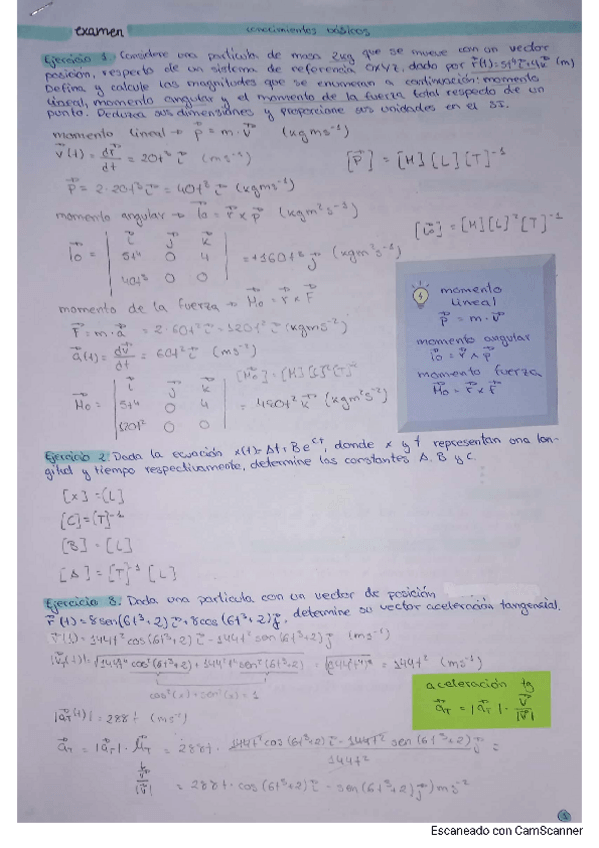 examen
conocimientos básicos
Ejercicio 1. Considere una partícula de masa 2kg que se mueve con un vector
posición, respecto de un sistema de referencia OXYZ, dado por r⃗(t)=5t⁴ i⃗+4k⃗ (m)
Defina y calcule las magnitudes que se enumeran a continuación: momento
lineal, momento angular y el momento de la fuerza total respecto de un
punto. Deduzca sus dimensiones y proporcione sus unidades en el SI.
momento lineal → p⃗ = m · v⃗ (kgms⁻¹)
v⃗(t) = dr⃗/dt = 20t³ i⃗ (ms⁻¹) [p⃗] = [M][L][T]⁻¹
p⃗ = 2·20t³ i⃗ = 40t³ i⃗ (kgms⁻¹)
momento angular → lo⃗ = r⃗ × p⃗ (kgm²s⁻¹) [lo⃗] = [M][L]²[T]⁻¹
i⃗ j⃗ k⃗
lo⃗ = 5t⁴ 0 4 = +160t³ j⃗ (kgm²s⁻¹)
40t³ 0 0
momento
lineal
p⃗ = m · v⃗
momento angular
lo⃗ = r⃗ ∧ p⃗
momento fuerza
Mo⃗ = r⃗ × F⃗
momento de la fuerza → Mo⃗ = r⃗ × F⃗
F⃗ = m · a⃗ = 2·60t² i⃗ = 120t² i⃗ (kgms⁻²)
a⃗(t) = dv⃗/dt = 60t² i⃗ (ms⁻²)
[Mo⃗] = [M][L]²[T]⁻²
i⃗ j⃗ k⃗
Mo⃗ = 5t⁴ 0 4 = 480t² k⃗ (kgm²s⁻²)
120t² 0 0
Ejercicio 2. Dada la ecuación x(t)=At+Be^ct, donde x y t representan una lon-
gitud y tiempo respectivamente, determine las constantes A, B y C.
[x] = [L]
[C] = [T]⁻¹
[B] = [L]
[A] = [T]⁻¹ [L]
Ejercicio 3. Dada una partícula con un vector de posición
r⃗(t) = 8sen(6t³+2) i⃗ + 8cos(6t³+2) j⃗, determine su vector aceleración tangencial.
v⃗(t) = 144t² cos(6t³+2) i⃗ - 144t² sen(6t³+2) j⃗ (ms⁻¹)
|v⃗(t)| = √(144²t⁴ cos²(6t³+2) + 144²t⁴ sen²(6t³+2)) = √(144²t⁴) = 144t² (ms⁻¹)
cos²(x)+sen²(x) = 1
aceleración tg
a⃗T = |a⃗T| · v⃗/|v⃗|
|a⃗T(t)| = 288t (ms⁻²)
a⃗T = |a⃗T| · μ⃗T = 288t · (144t² cos(6t³+2) i⃗ - 144t² sen(6t³+2) j⃗)/144t² =
v⃗/|v⃗|
= 288t · cos(6t³+2) i⃗ - sen(6t³+2) j⃗) ms⁻²
1
Escaneado con CamScanner